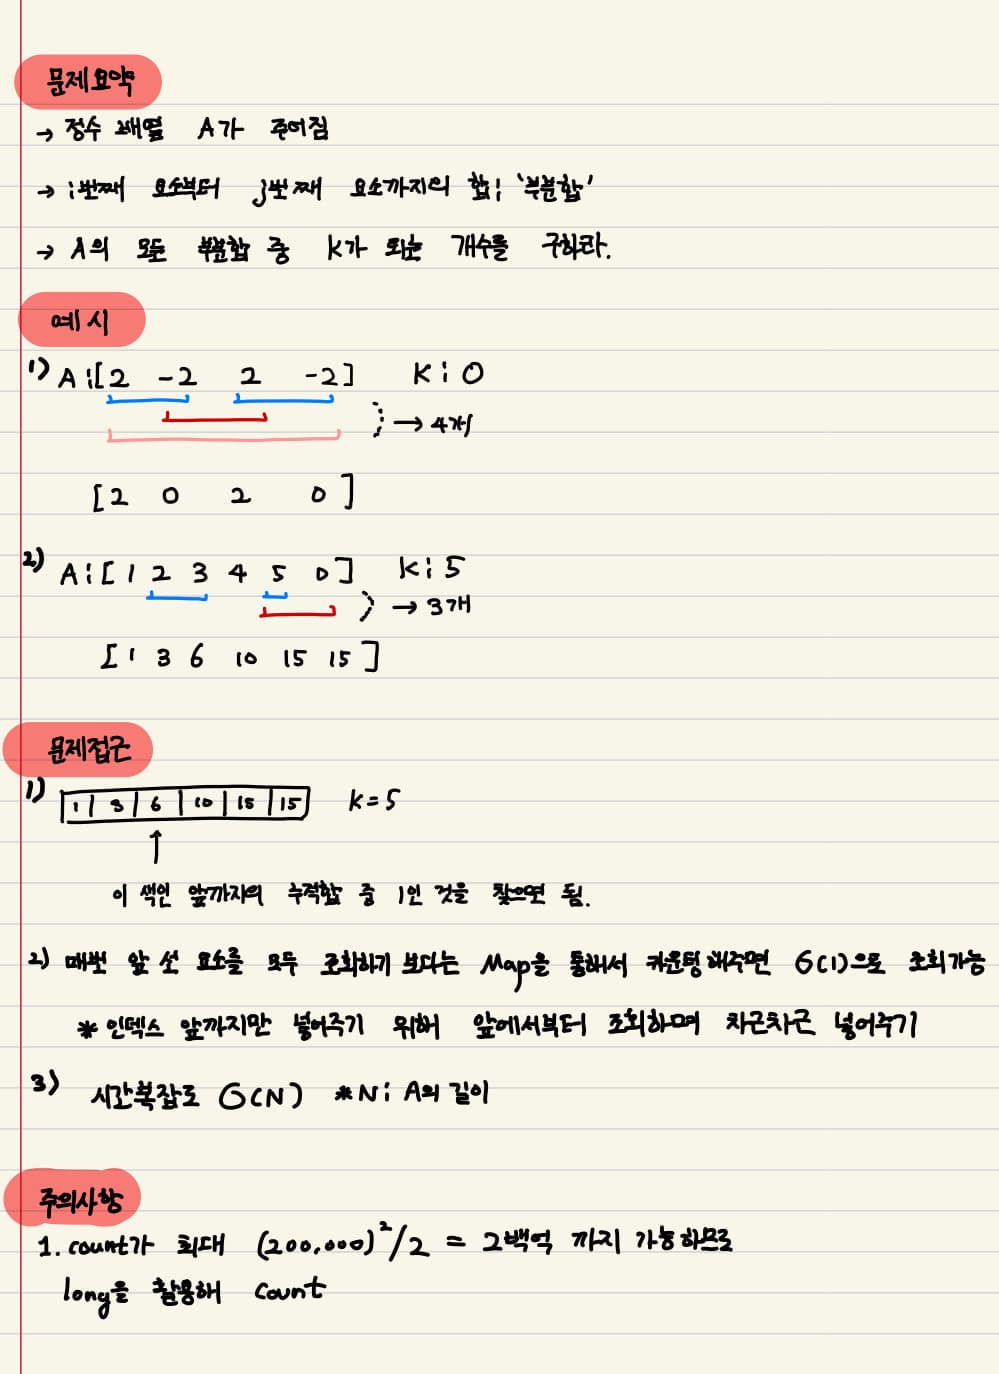 문제요약
→ 정수 배열 A가 주어짐
→ i번째 요소부터 j번째 요소까지의 합; '부분합'
→ A의 모든 부분합 중 K가 되는 개수를 구하라.
예시
1) A:[2 -2 2 -2] K:0
→ 4개
[2 0 2 0]
2) A:[1 2 3 4 5 0] K:5
→ 3개
[1 3 6 10 15 15]
문제접근
1) 1 3 6 10 15 15 K=5
↑
이 색인 앞까지의 누적합 중 1인 것을 찾으면 됨.
2) 매번 앞 선 요소를 모두 조회하기 보다는 Map을 통해서 카운팅해주면 O(1)으로 조회가능
* 인덱스 앞까지만 넣어주기 위해 앞에서부터 조회하며 차근차근 넣어주기
3) 시간복잡도 O(N) *N: A의 길이
주의사항
1. count가 최대 (200,000)²/2 = 2백억 까지 가능하므로
long을 활용해 count